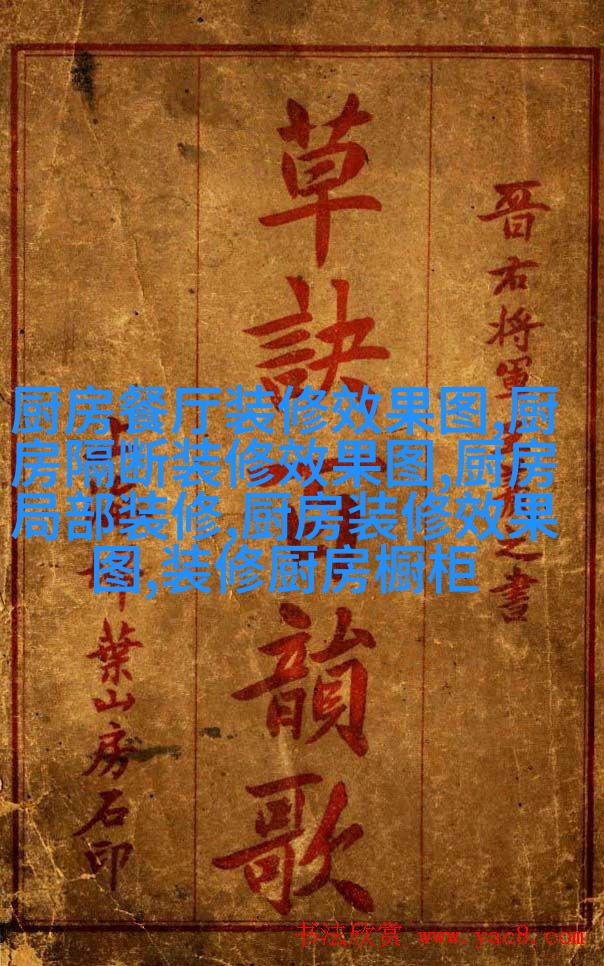 晋右將軍之書
草訣百韻歌
葉山房石印
厨房餐厅装修效果图,厨
房隔断装修效果图,厨房
局部装修,厨房装修效果
图,装修厨房橱柜
书法欣赏 www.yac8.com